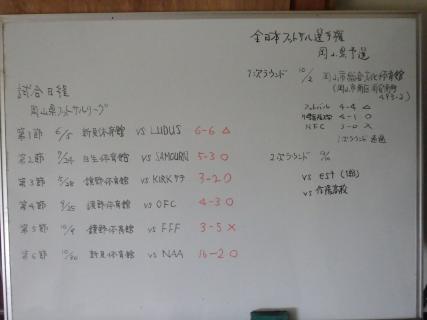 試合日程
岡山県フットサルリーグ
第1節 6/5 新見体育館 vs LUDUS 6-6 △
第2節 7/24 体育館 vs SAMGURN 5-3 ○
第3節 体育館 vs KIRK 3-2 ○
第4節 9/25 体育館 vs OFC 4-3 ○
第5節 10/9 体育館 vs FFF 3-5 ×
第6節 10/30 新見体育館 vs NAA 16-2 ○
全日本フットサル選手権
岡山県予選
1次ラウンド 10/2 岡山市総合文化体育館
(岡山市南区
493-2)
4-4 △
4-1 ○
NFC 3-0 ×
1次ラウンド 通過
2次ラウンド
vs est (1部)
vs 高校